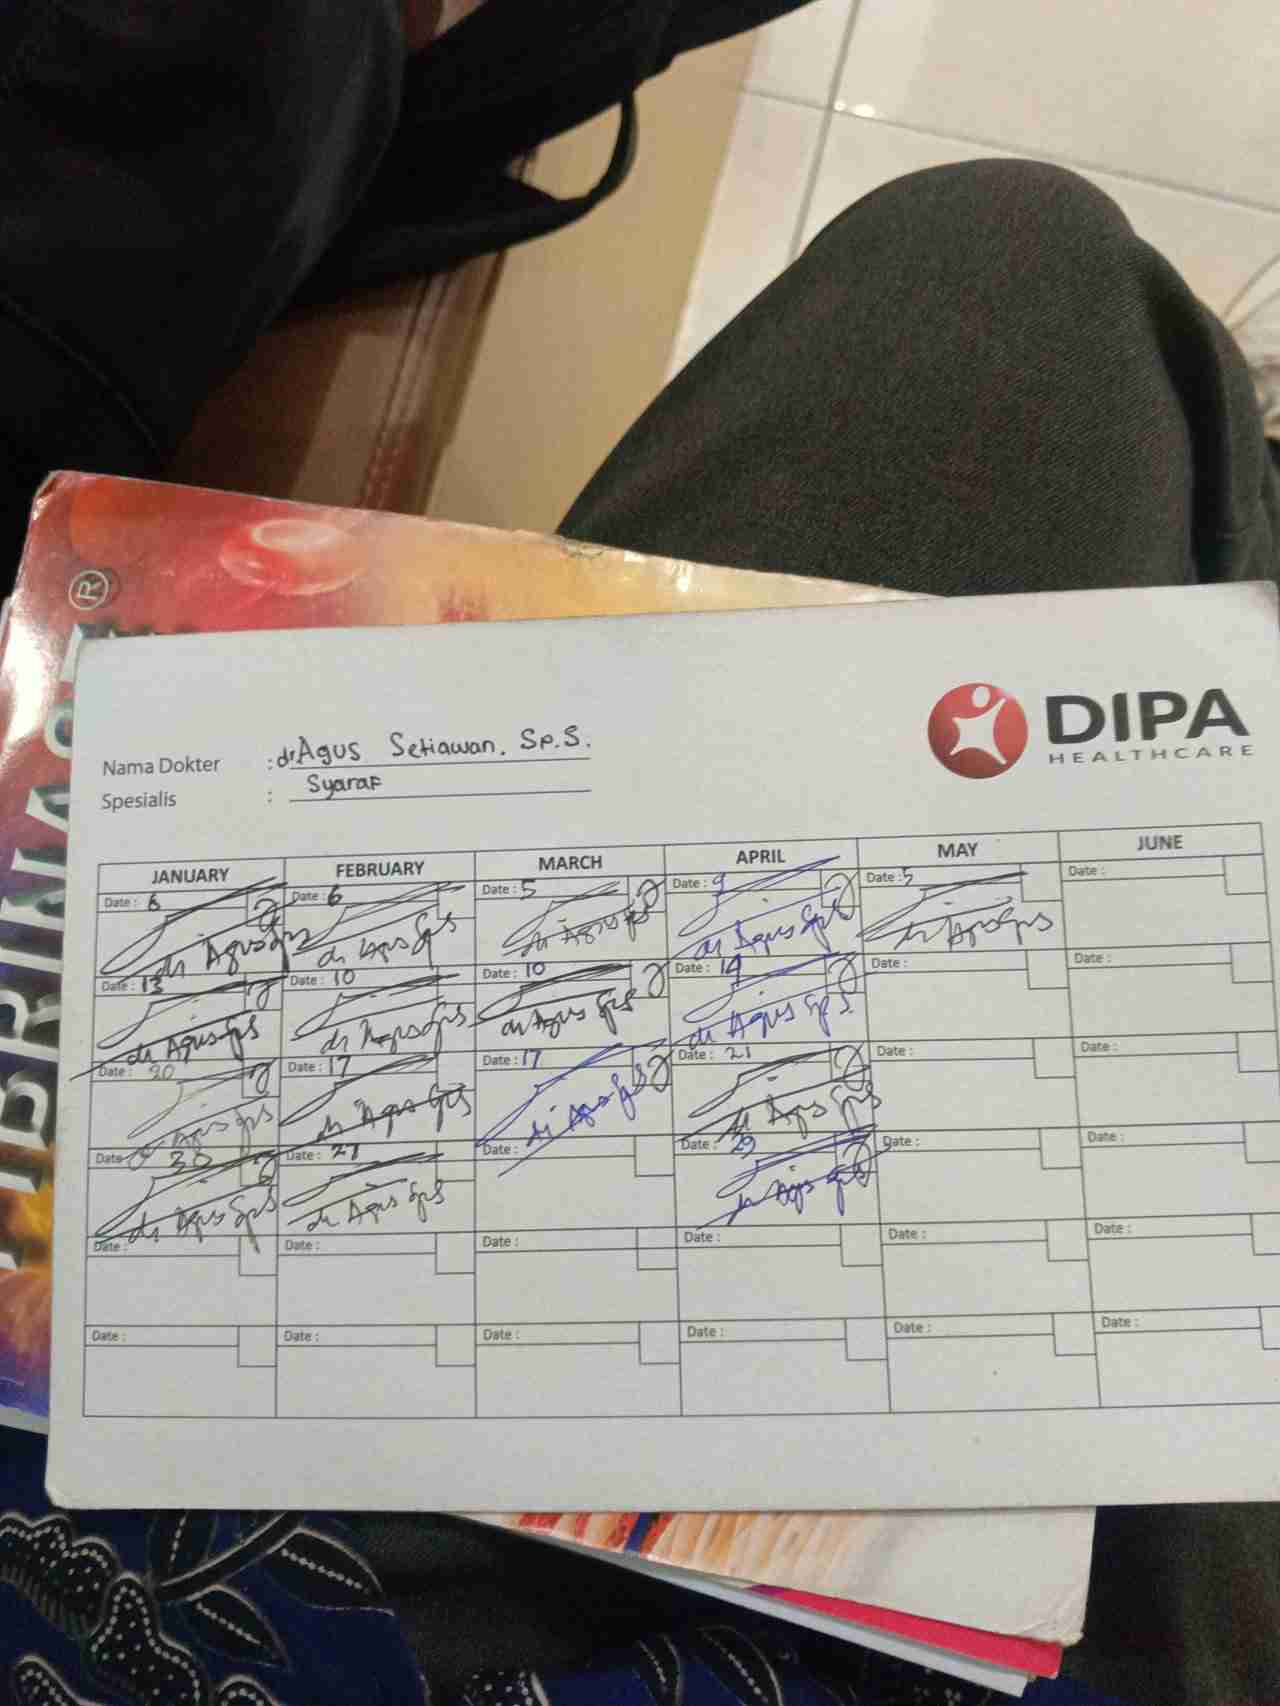 ®
DIPA
HEALTHCARE
Nama Dokter : dr Agus Setiawan. Sp.S.
Spesialis : Syaraf
JANUARY FEBRUARY MARCH APRIL MAY JUNE
Date : 6 Date : 6 Date : 5 Date : 9 Date : 5 Date :
dr Agus SpS dr Agus SpS dr Agus SpS dr Agus SpS dr Agus SpS
Date : 13 Date : 10 Date : 10 Date : 14 Date : Date :
dr Agus SpS dr Agus SpS dr Agus SpS dr Agus SpS
Date : 20 Date : 17 Date : 17 Date : 21 Date : Date :
dr Agus SpS dr Agus SpS dr Agus SpS dr Agus SpS
Date 30 Date : 27 Date : Date : 29 Date : Date :
dr Agus SpS dr Agus SpS dr Agus SpS
Date : Date : Date : Date : Date : Date :
Date : Date : Date : Date : Date : Date :